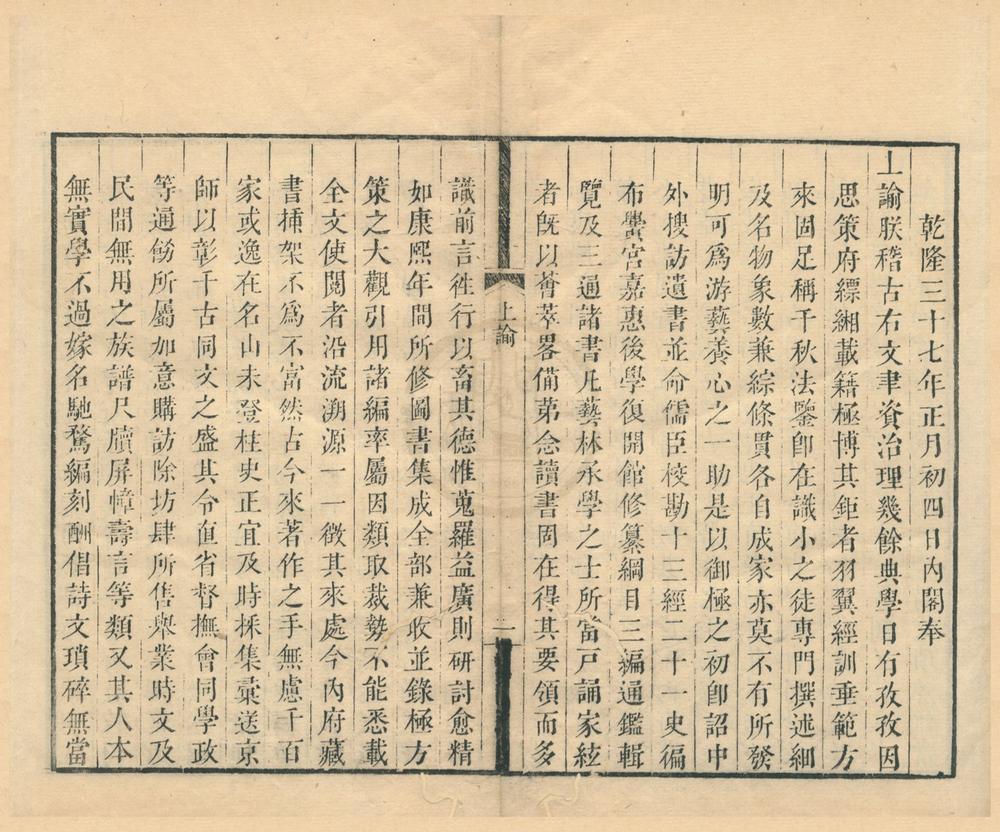 乾隆三十七年正月初四日內閣奉
上諭朕稽古右文聿資治理幾餘典學日有孜孜因
思策府縹緗載籍極博其鉅者羽翼經訓垂範方
來固足稱千秋法鑒卽在識小之徒專門撰述細
及名物象數兼綜條貫各自成家亦莫不有所發
明可爲游藝養心之一助是以御極之初卽詔中
外搜訪遺書並命儒臣校勘十三經二十一史徧
布黌宮嘉惠後學復開館修纂綱目三編通鑑輯
覽及三通諸書凡藝林承學之士所當戸誦家絃
者旣以薈萃畧備苐念讀書固在得其要領而多
上諭
一
識前言徃行以畜其德惟蒐羅益廣則硏討愈精
如康熙年間所修圖書集成全部兼收並錄極方
策之大觀引用諸編率屬因類取裁勢不能悉載
全文使閱者沿流溯源一一徵其來處今內府藏
書揷架不爲不富然古今來著作之手無慮千百
家或逸在名山未登柱史正宜及時採集彙送京
師以彰千古同文之盛其令直省督撫會同學政
等通飭所屬加意購訪除坊肆所售舉業時文及
民間無用之族譜尺牘屏幛壽言等類又其人本
無實學不過嫁名馳騖編刻酬倡詩文瑣碎無當